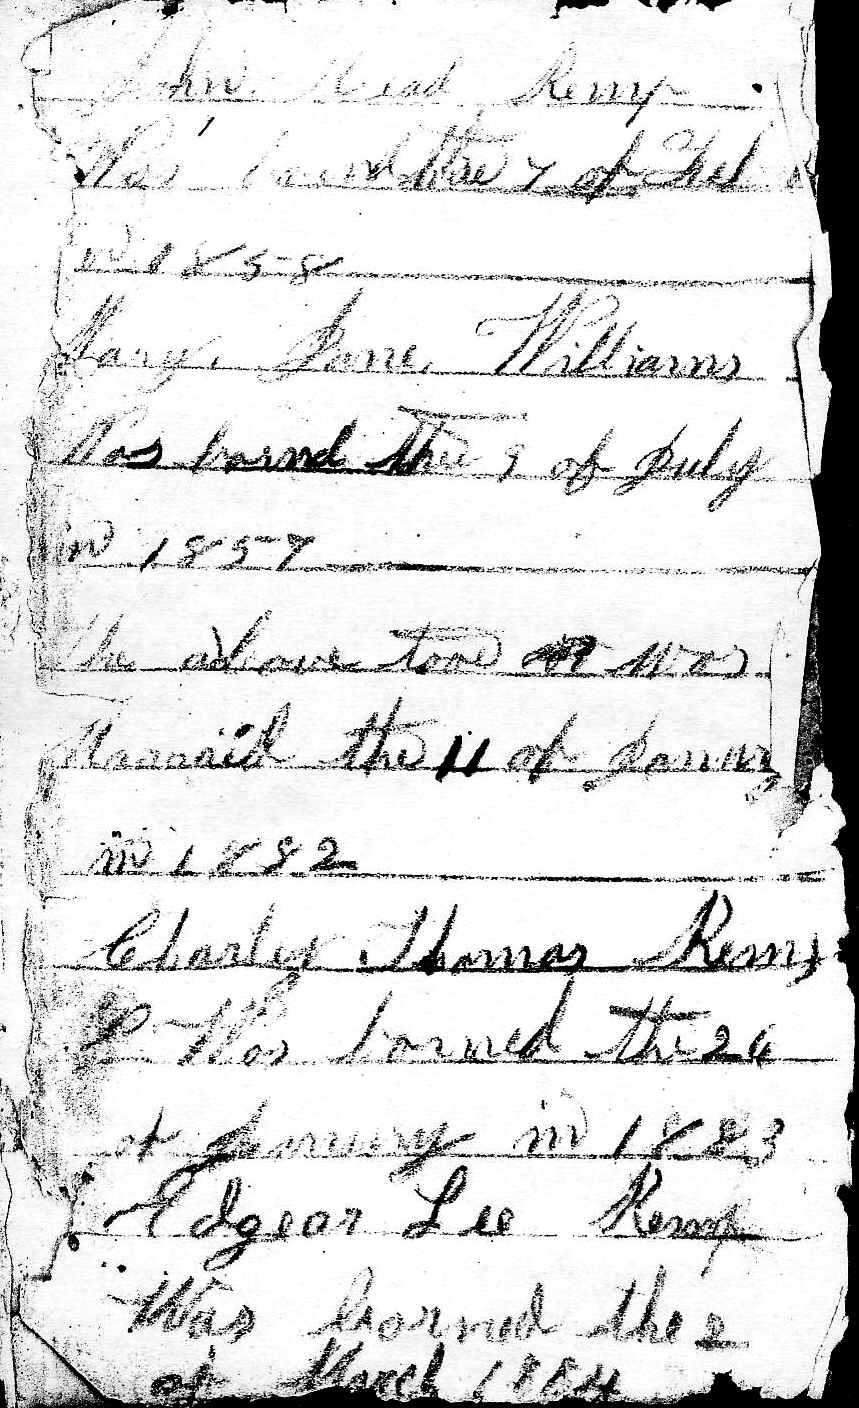 John Mead Kemp
Was bornd the 7 of Feb
in 1858
Mary Jane Williams
Was bornd the 9 of July
in 1857
the above tow was
Marraid the 11 of Janury
in 1882
Charley Thomas Kem
P Was borned the 26
of Janury in 1883
Edgear Lee Kemp
Was borned the 2
of March 1884